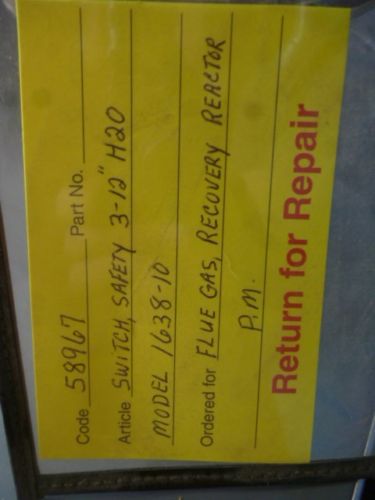 Code 58967 Part No.
Article SWITCH, SAFETY 3-12" H20
MODEL 1638-10
Ordered for FLUE GAS, RECOVERY REACTOR
P.M.
Return for Repair